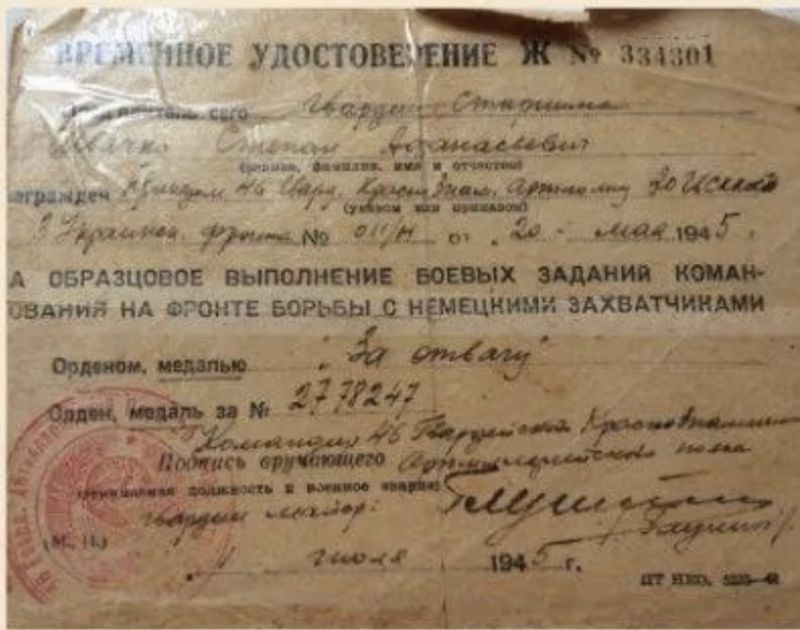 ВРЕМЕННОЕ УДОСТОВЕРЕНИЕ Ж № 334301
сего Гвардии Старшина
Степан Афанасьевич
(звание, фамилия, имя и отчество)
награжден 46 Гвард. Краснознам. 
(указом или приказом)
3 Украинск. фронта № 011/Н от „20 - мая 1945 г.
А ОБРАЗЦОВОЕ ВЫПОЛНЕНИЕ БОЕВЫХ ЗАДАНИЙ КОМАН-
ОВАНИЯ НА ФРОНТЕ БОРЬБЫ С НЕМЕЦКИМИ ЗАХВАТЧИКАМИ
Орденом, медалью „За отвагу"
Орден, медаль за № 2778247
Командир 46 Гвардейского Краснознаменного
Подпись вручающего Артиллерийского полка
должность и военное звание
гвардии майор:
(М. П.)
июля 1945 г.